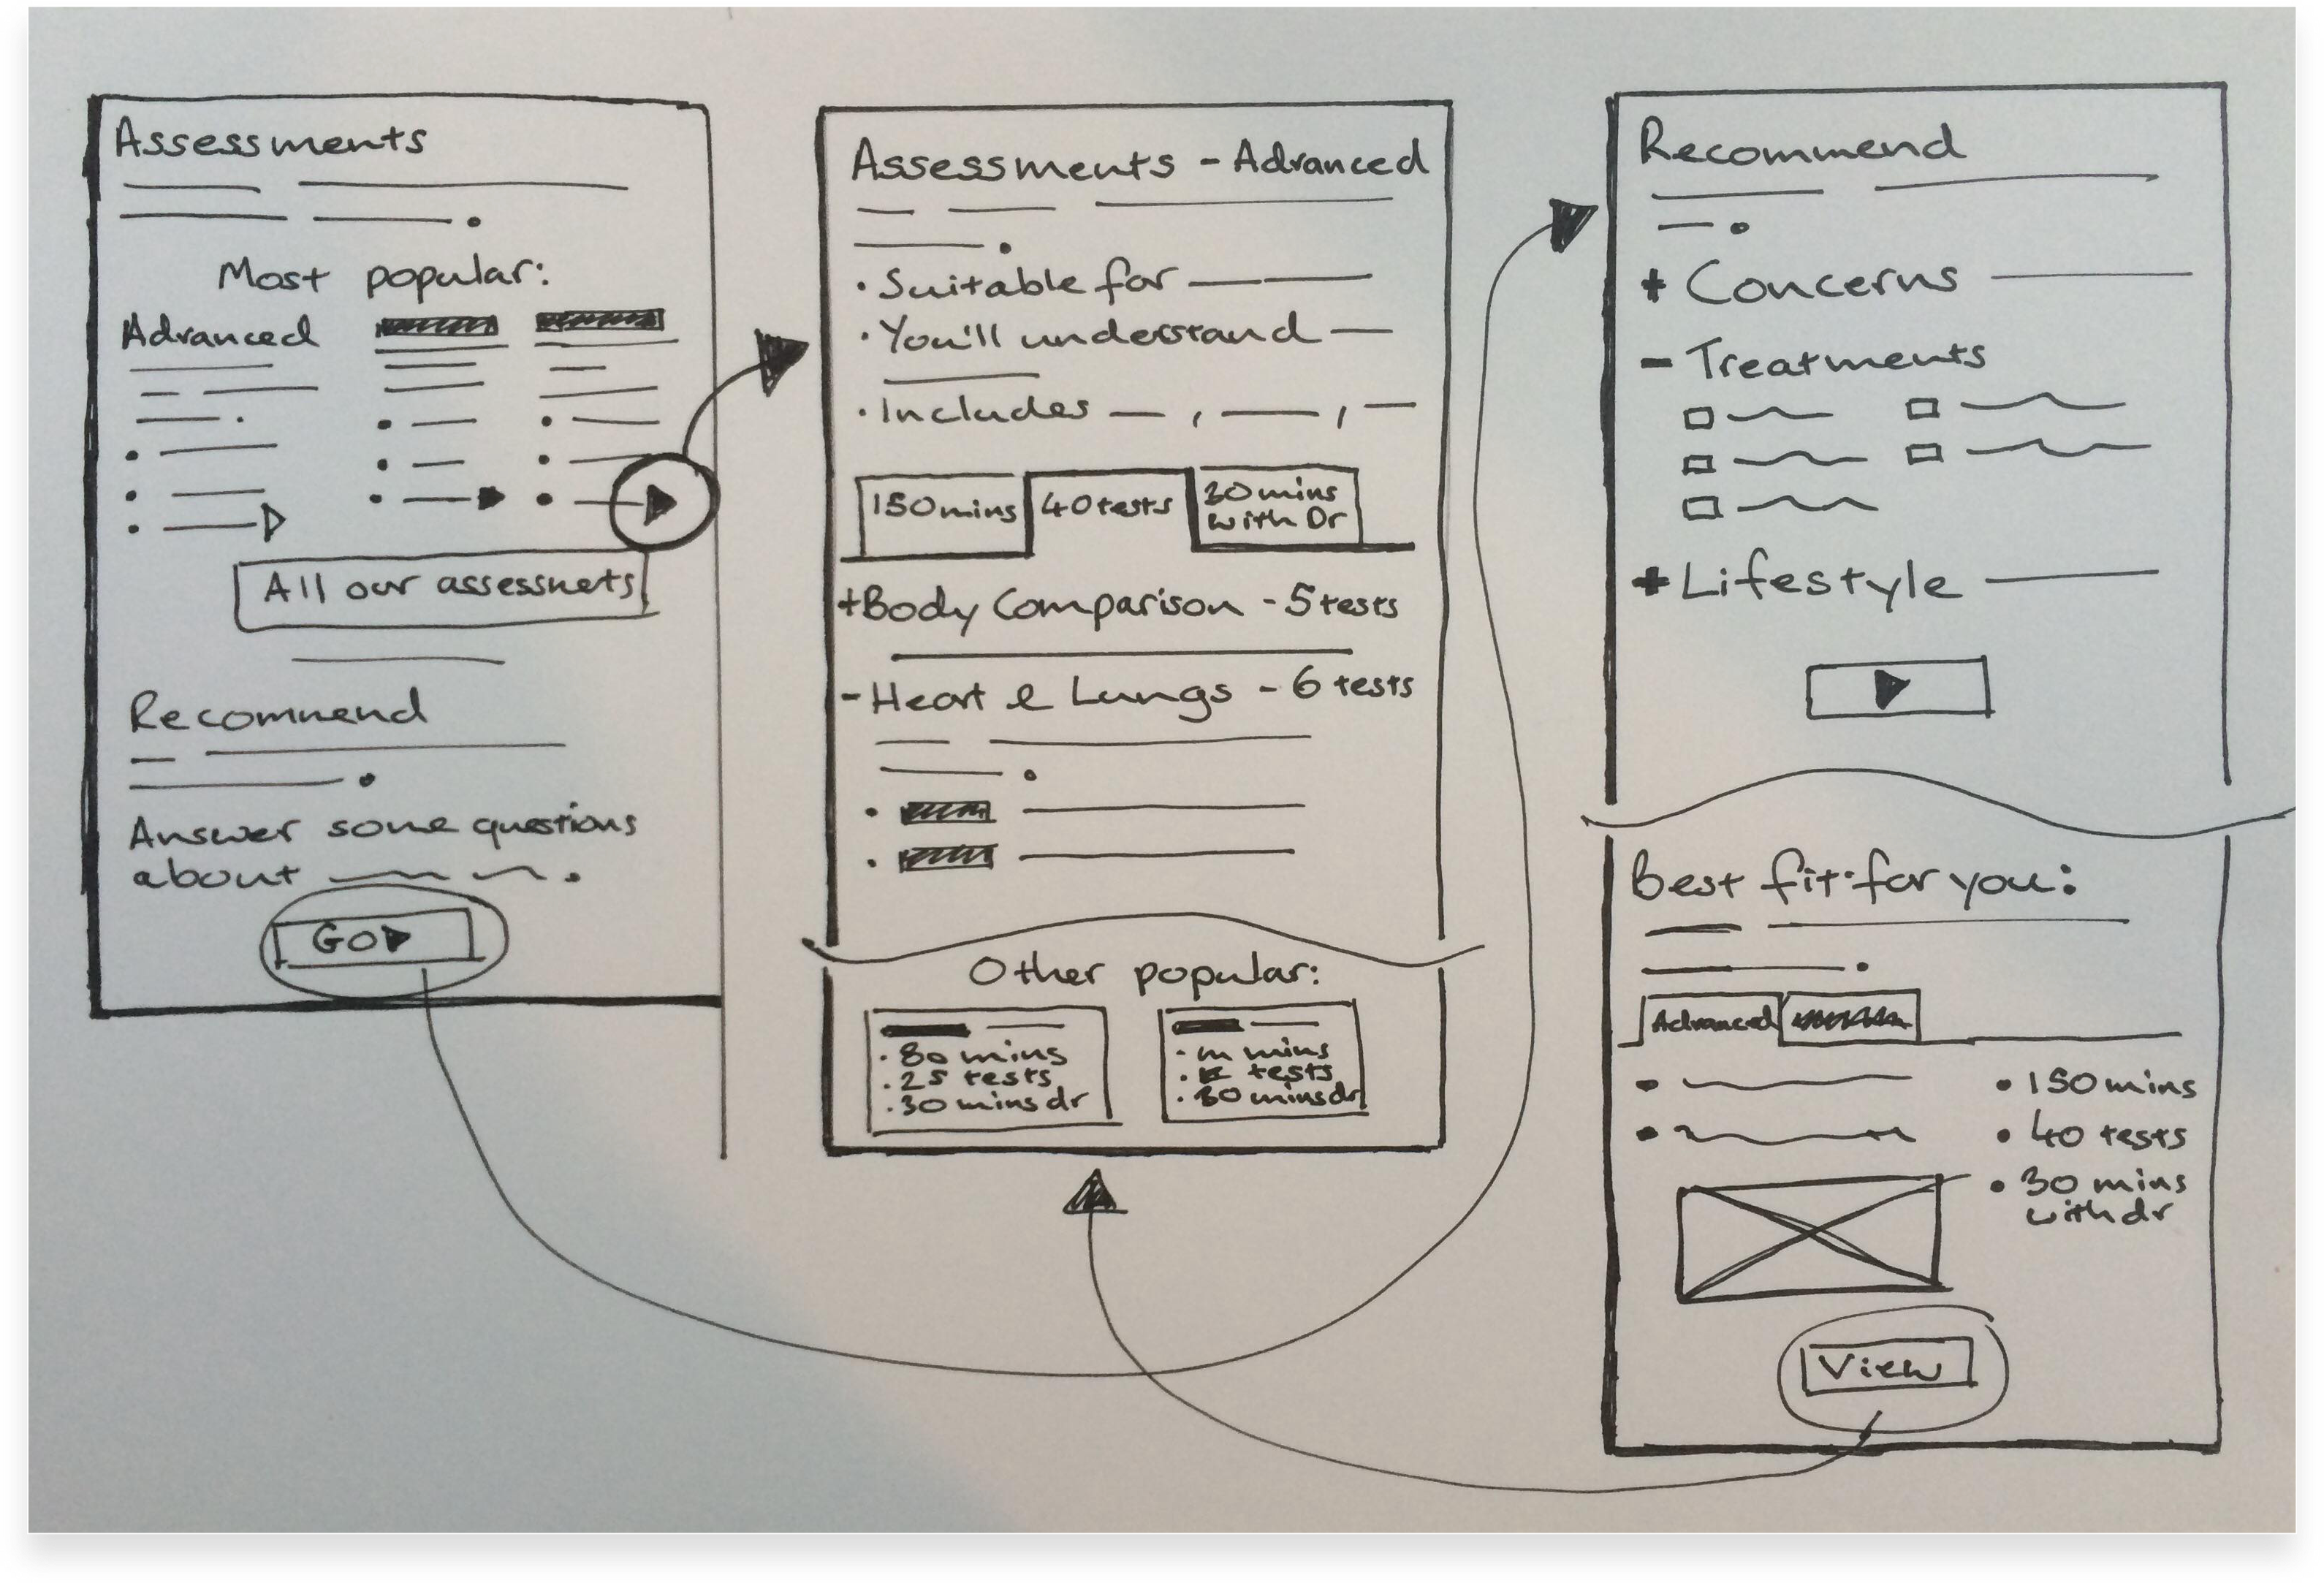 Assessments
Most popular:
Advanced
All our assessmets
Recommend
Answer some questions
about
GO
Assessments - Advanced
• Suitable for
• You'll understand
• Includes , ,
150mins
40 tests
30mins
with Dr
+Body Comparison - 5 tests
- Heart & Lungs - 6 tests
Other popular:
• 80 mins
• 25 tests
• 30 mins dr
mins
tests
• 30 mins dr
Recommend
+ Concerns
- Treatments
+ Lifestyle
Best fit for you:
Advanced
• 150 mins
• 40 tests
• 30 mins
with dr
View